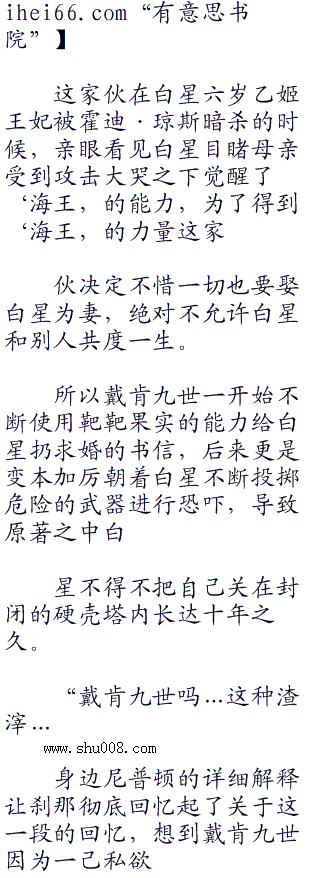 ihei66.com“有意思书
院”】
这家伙在白星六岁乙姬
王妃被霍迪·琼斯暗杀的时
候，亲眼看见白星目睹母亲
受到攻击大哭之下觉醒了
‘海王，的能力，为了得到
‘海王，的力量这家
伙决定不惜一切也要娶
白星为妻，绝对不允许白星
和别人共度一生。
所以戴肯九世一开始不
断使用靶靶果实的能力给白
星扔求婚的书信，后来更是
变本加厉朝着白星不断投掷
危险的武器进行恐吓，导致
原著之中白
星不得不把自己关在封
闭的硬壳塔内长达十年之
久。
“戴肯九世吗...这种渣
滓...
www.shu008.com
身边尼普顿的详细解释
让刹那彻底回忆起了关于这
一段的回忆，想到戴肯九世
因为一己私欲